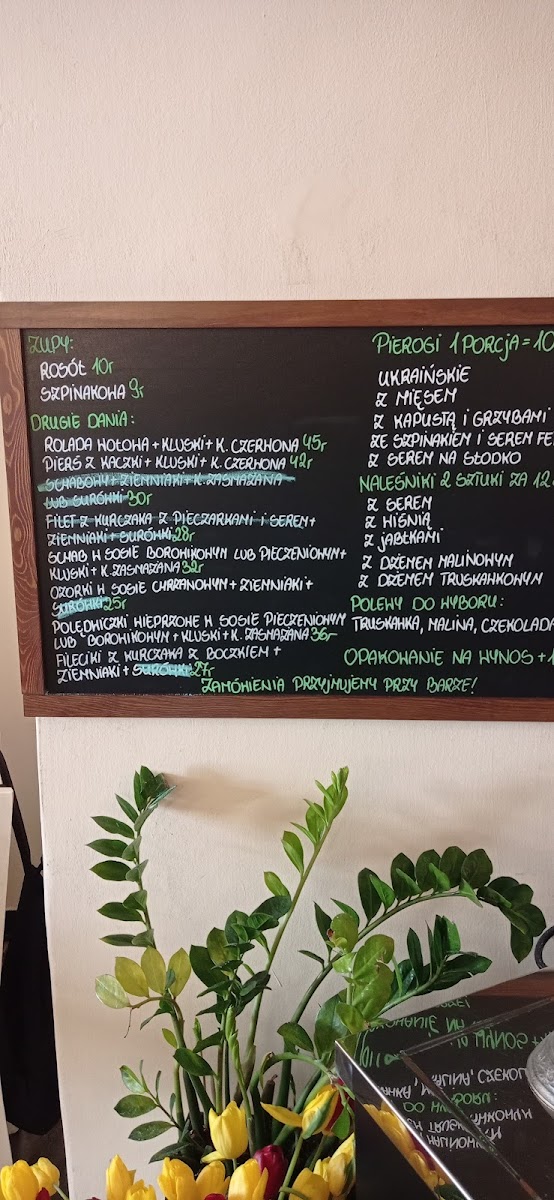 ZUPY:
ROSÓŁ 10zł
SZPINAKOWA 9zł
DRUGIE DANIA:
ROLADA WOŁOWA + KLUSKI + K. CZERWONA 45zł
PIERŚ Z KACZKI + KLUSKI + K. CZERWONA 42zł
SCHABOWY + ZIEMNIAKI + K. ZASMAŻANA
LUB SURÓWKI 30zł
FILET Z KURCZAKA Z PIECZARKAMI I SEREM +
ZIEMNIAKI + SURÓWKI 28zł
SCHAB W SOSIE BOROWIKOWYM LUB PIECZENIOWYM +
KLUSKI + K. ZASMAŻANA 32zł
OZORKI W SOSIE CHRZANOWYM + ZIEMNIAKI +
SURÓWKI 25zł
POLĘDWICZKI WIEPRZOWE W SOSIE PIECZENIOWYM
LUB BOROWIKOWYM + KLUSKI + K. ZASMAŻANA 36zł
FILECIKI Z KURCZAKA Z BOCZKIEM +
ZIEMNIAKI + SURÓWKI 27zł
PIEROGI 1 PORCJA = 10
UKRAIŃSKIE
Z MIĘSEM
Z KAPUSTĄ I GRZYBAMI
ZE SZPINAKIEM I SEREM FE
Z SEREM NA SŁODKO
NALEŚNIKI 2 SZTUKI ZA 12
Z SEREM
Z WIŚNIĄ
Z JABŁKAMI
Z DŻEMEM MALINOWYM
Z DŻEMEM TRUSKAWKOWYM
POLEWY DO WYBORU:
TRUSKAWKA, MALINA, CZEKOLADA
OPAKOWANIE NA WYNOS + 1
ZAMÓWIENIA PRZYJMUJEMY PRZY BARZE!